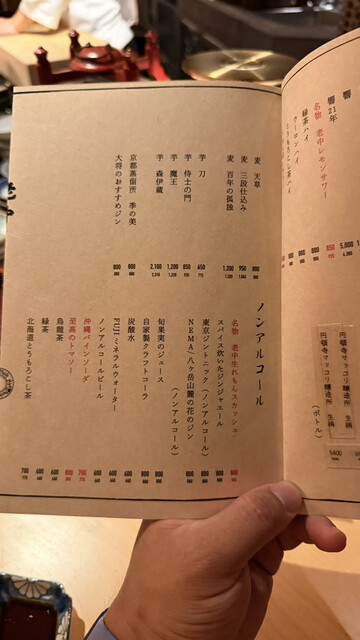 響
響 21年
名物 老中レモンサワー 850
緑茶ハイ
ウーロンハイ
とうもろこし茶ハイ
円頓寺マッコリ醸造所 生縞
円頓寺マッコリ醸造所 生縞
(ボトル)
5400
麦 天草 800
麦 三段仕込み 950
麦 百年の孤独 1,200
芋 刀 650
芋 侍士の門 850
芋 魔王 1,200
芋 森伊蔵 2,100
京都蒸留所 季の美 900
大将のおすすめジン 800
ノンアルコール
名物 老中生れもんスカッシュ
スパイス炊いたジンジャエール
東京ジントニック(ノンアルコール)
NEMA/八ヶ岳山麓の花のジン
(ノンアルコール)
旬果実のジュース 800
自家製クラフトコーラ 800
炭酸水
FUJIミネラルウォーター
ノンアルコールビール
沖縄パインソーダ 700
至高のトマソー
烏龍茶
緑茶
北海道とうもろこし茶 700